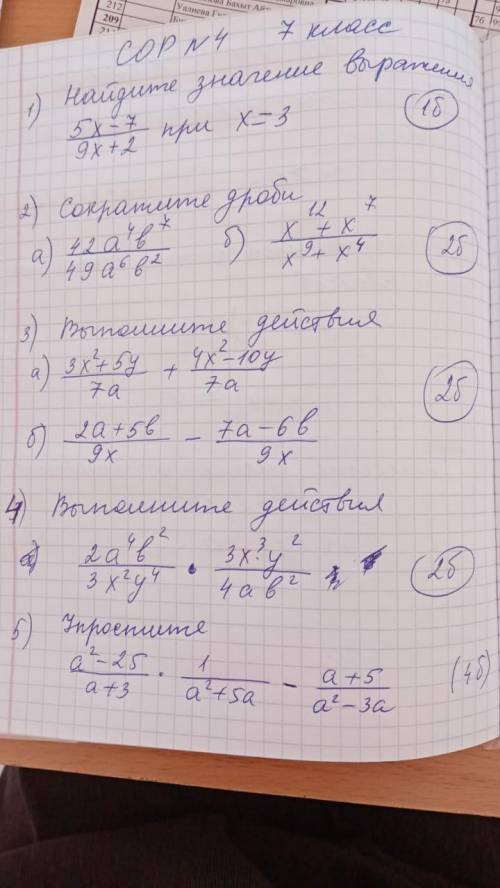 212
209
Уалиева
Бахыт
76
СОР N 4 7 класс
1) Найдите значение выражения
(5x-7)/(9x+2) при x=3 1б
2) Сократите дроби
а) (42a⁴b⁷)/(49a⁶b²) б) (x¹²+x⁷)/(x⁹+x⁴) 2б
3) Выполните действия
а) (3x²+5y)/(7a) + (4x²-10y)/(7a)
2б
б) (2a+5b)/(9x) - (7a-6b)/(9x)
4) Выполните действия
(2a⁴b²)/(3x²y⁴) · (3x³y²)/(4ab²) 2б
5) Упростите
(a²-25)/(a+3) · 1/(a²+5a) - (a+5)/(a²-3a) (4б)